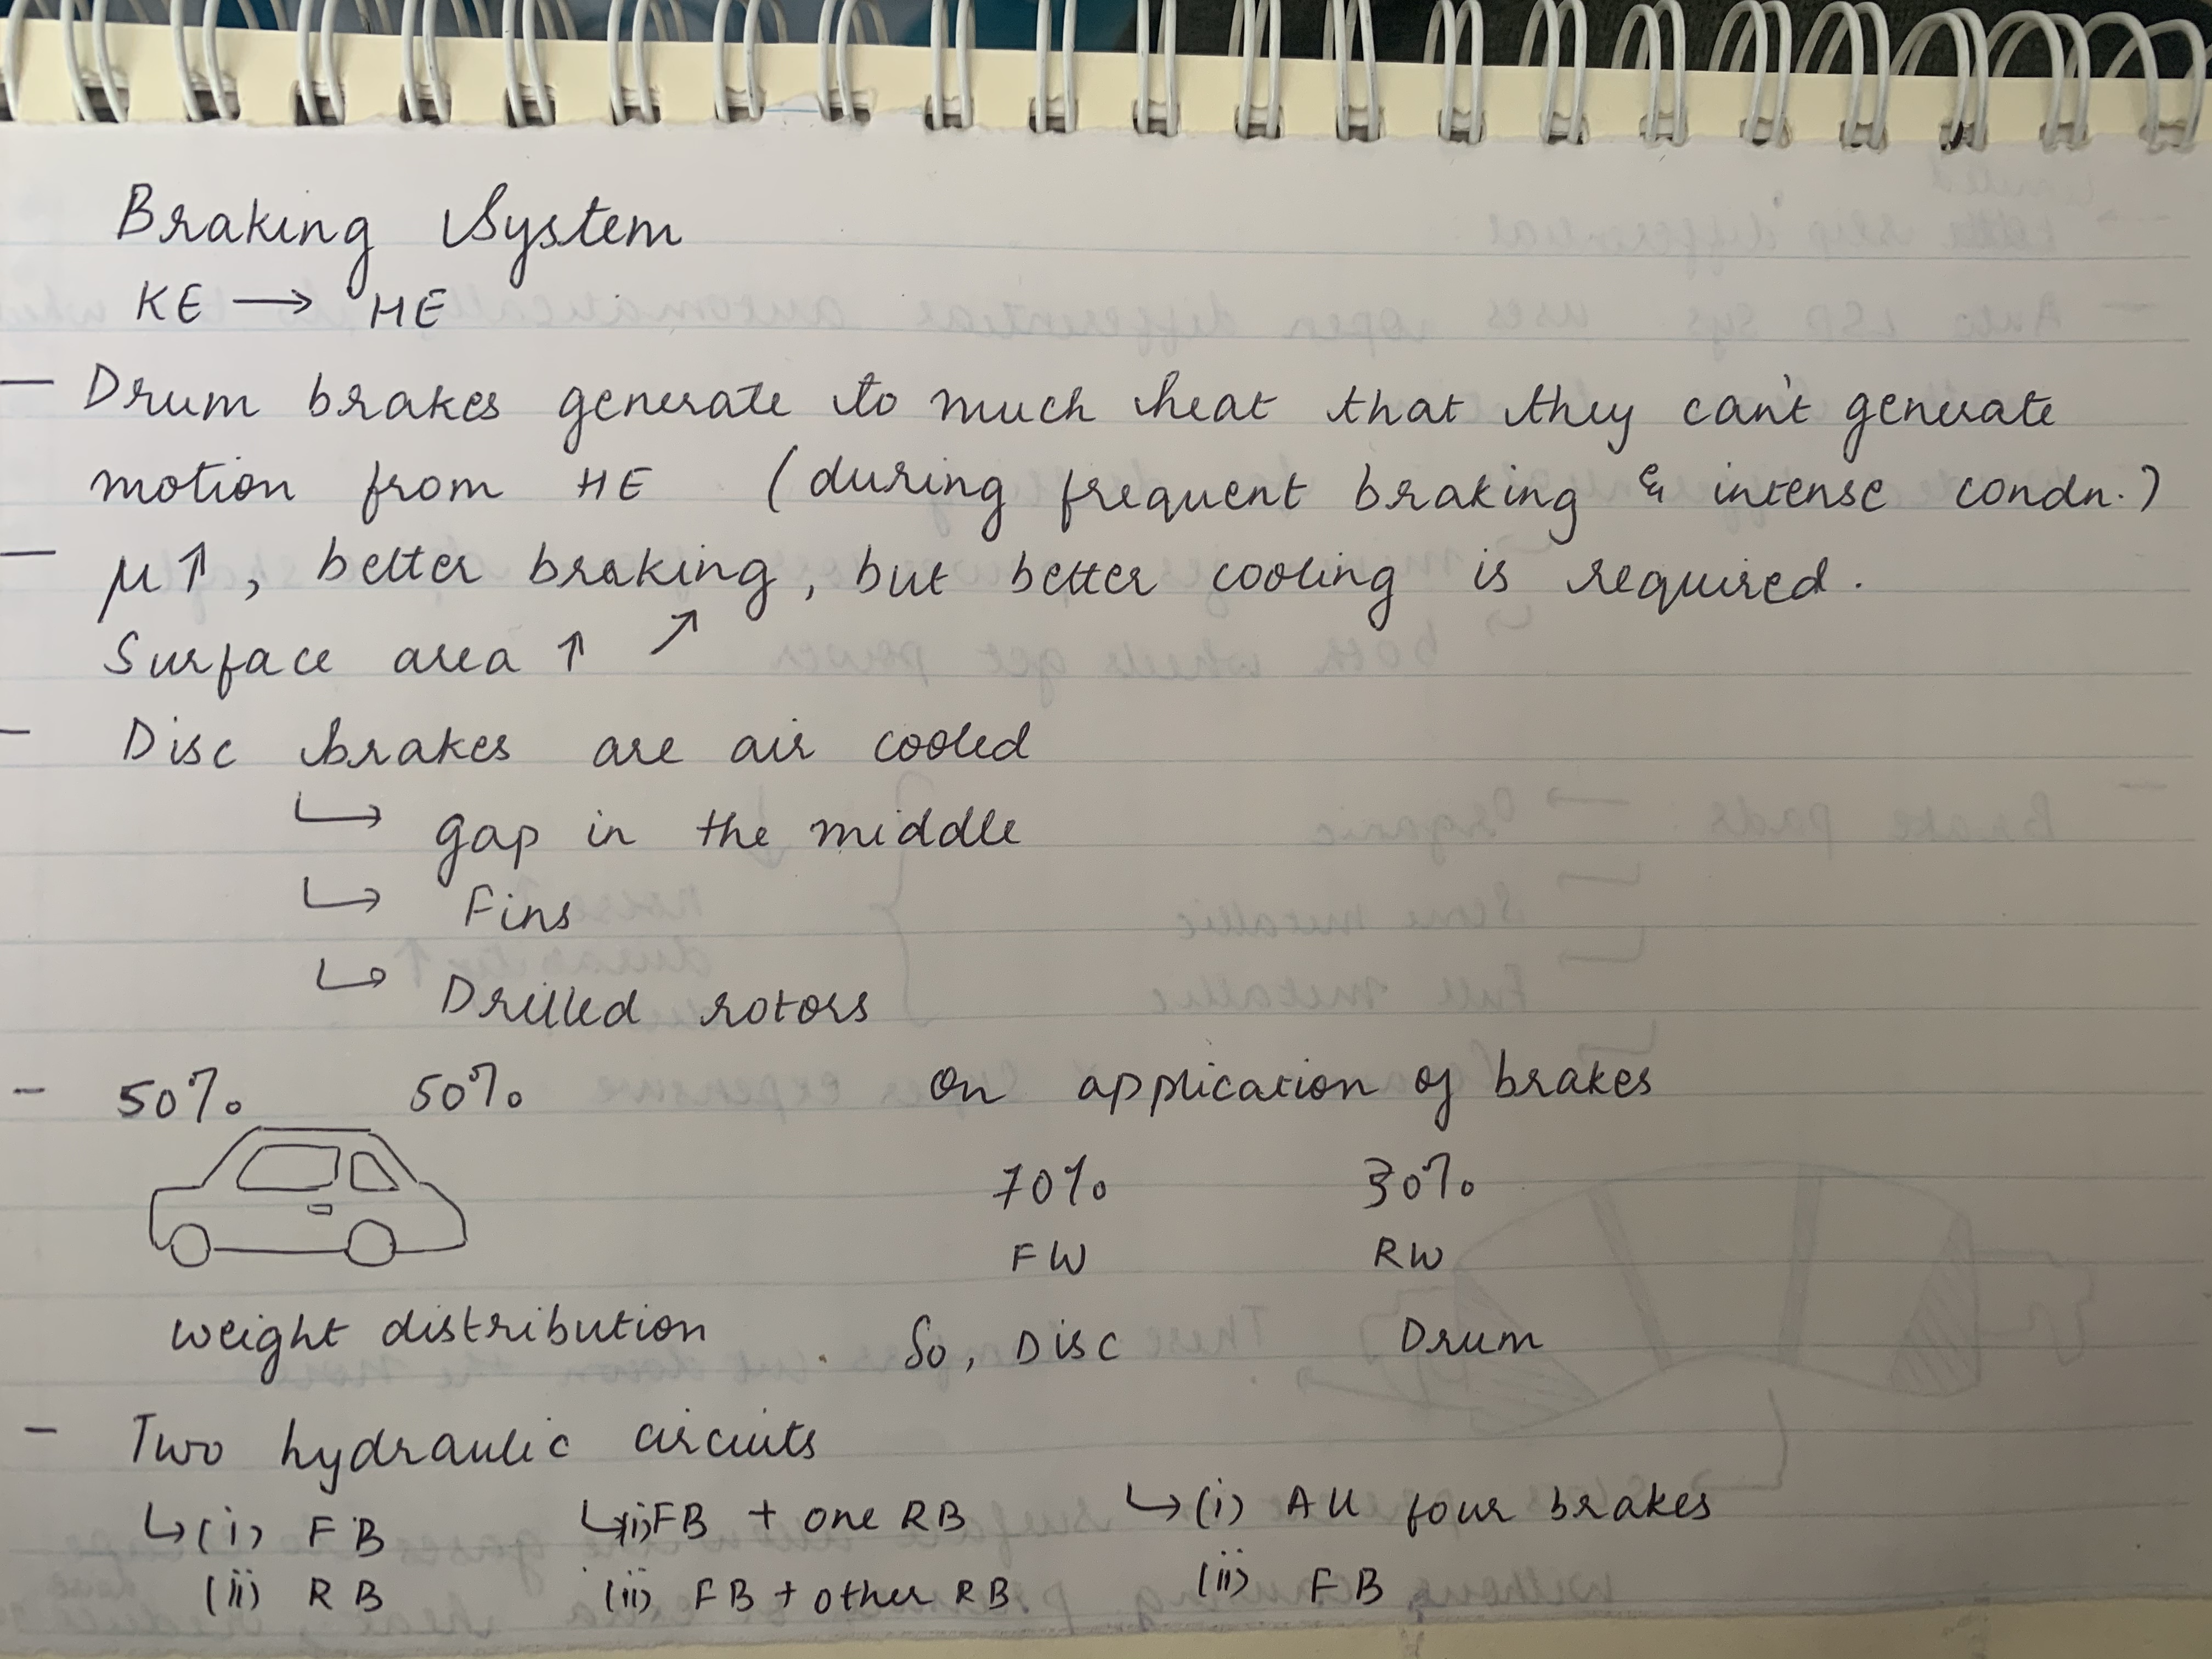 Braking System
KE → HE
— Drum brakes generate to much heat that they can't generate
motion from HE (during frequent braking & intense condn.)
— μ↑, better braking, but better cooling is required.
Surface area ↑ ↗
- Disc brakes are air cooled
↳ gap in the middle
↳ Fins
↳ Drilled rotors
- 50% 50% On application of brakes
70% 30%
FW RW
weight distribution So, Disc Drum
- Two hydraulic circuits
↳ (i) FB ↳ (i) FB + one RB ↳ (i) All four brakes
(ii) RB (ii) FB + other RB (ii) FB